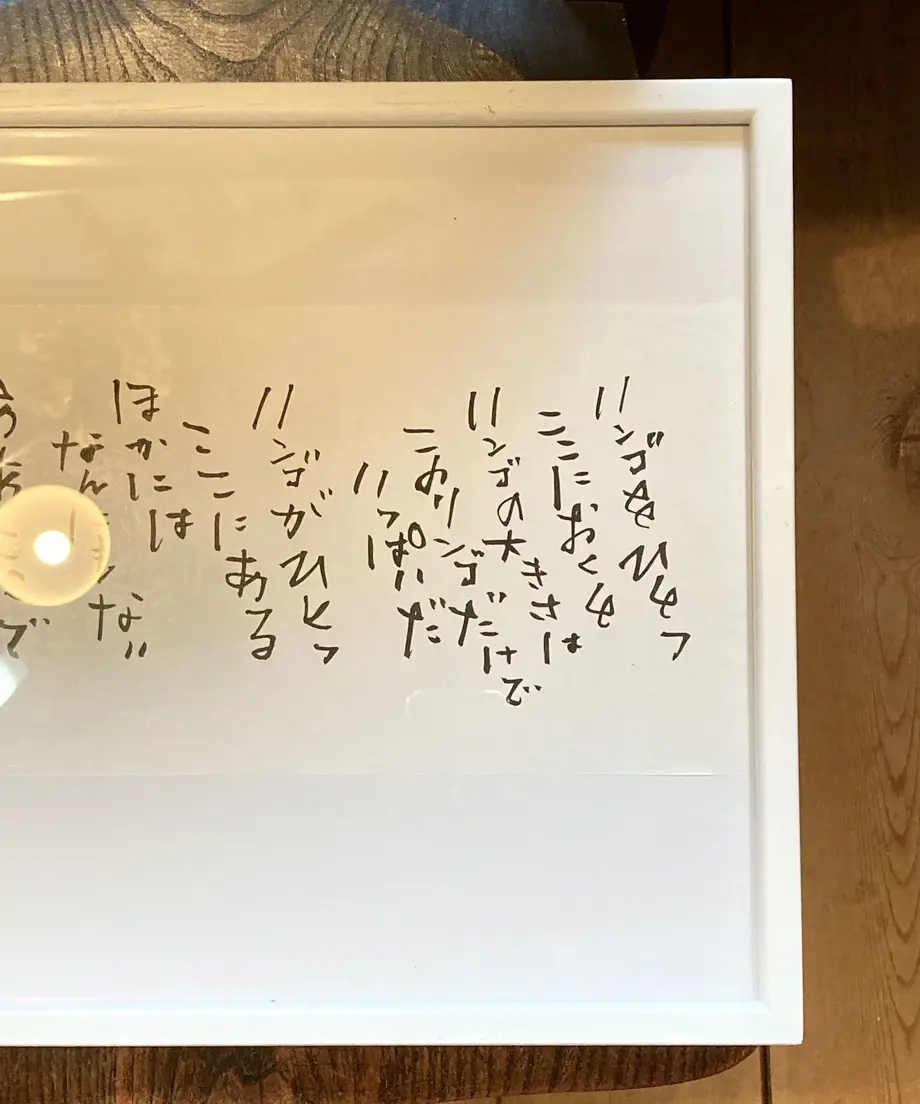 リンゴをひとつ
ここにおくと
リンゴの大きさは
このリンゴだけで
いっぱいだ
リンゴがひとつ
ここにある
ほかには
なん ない